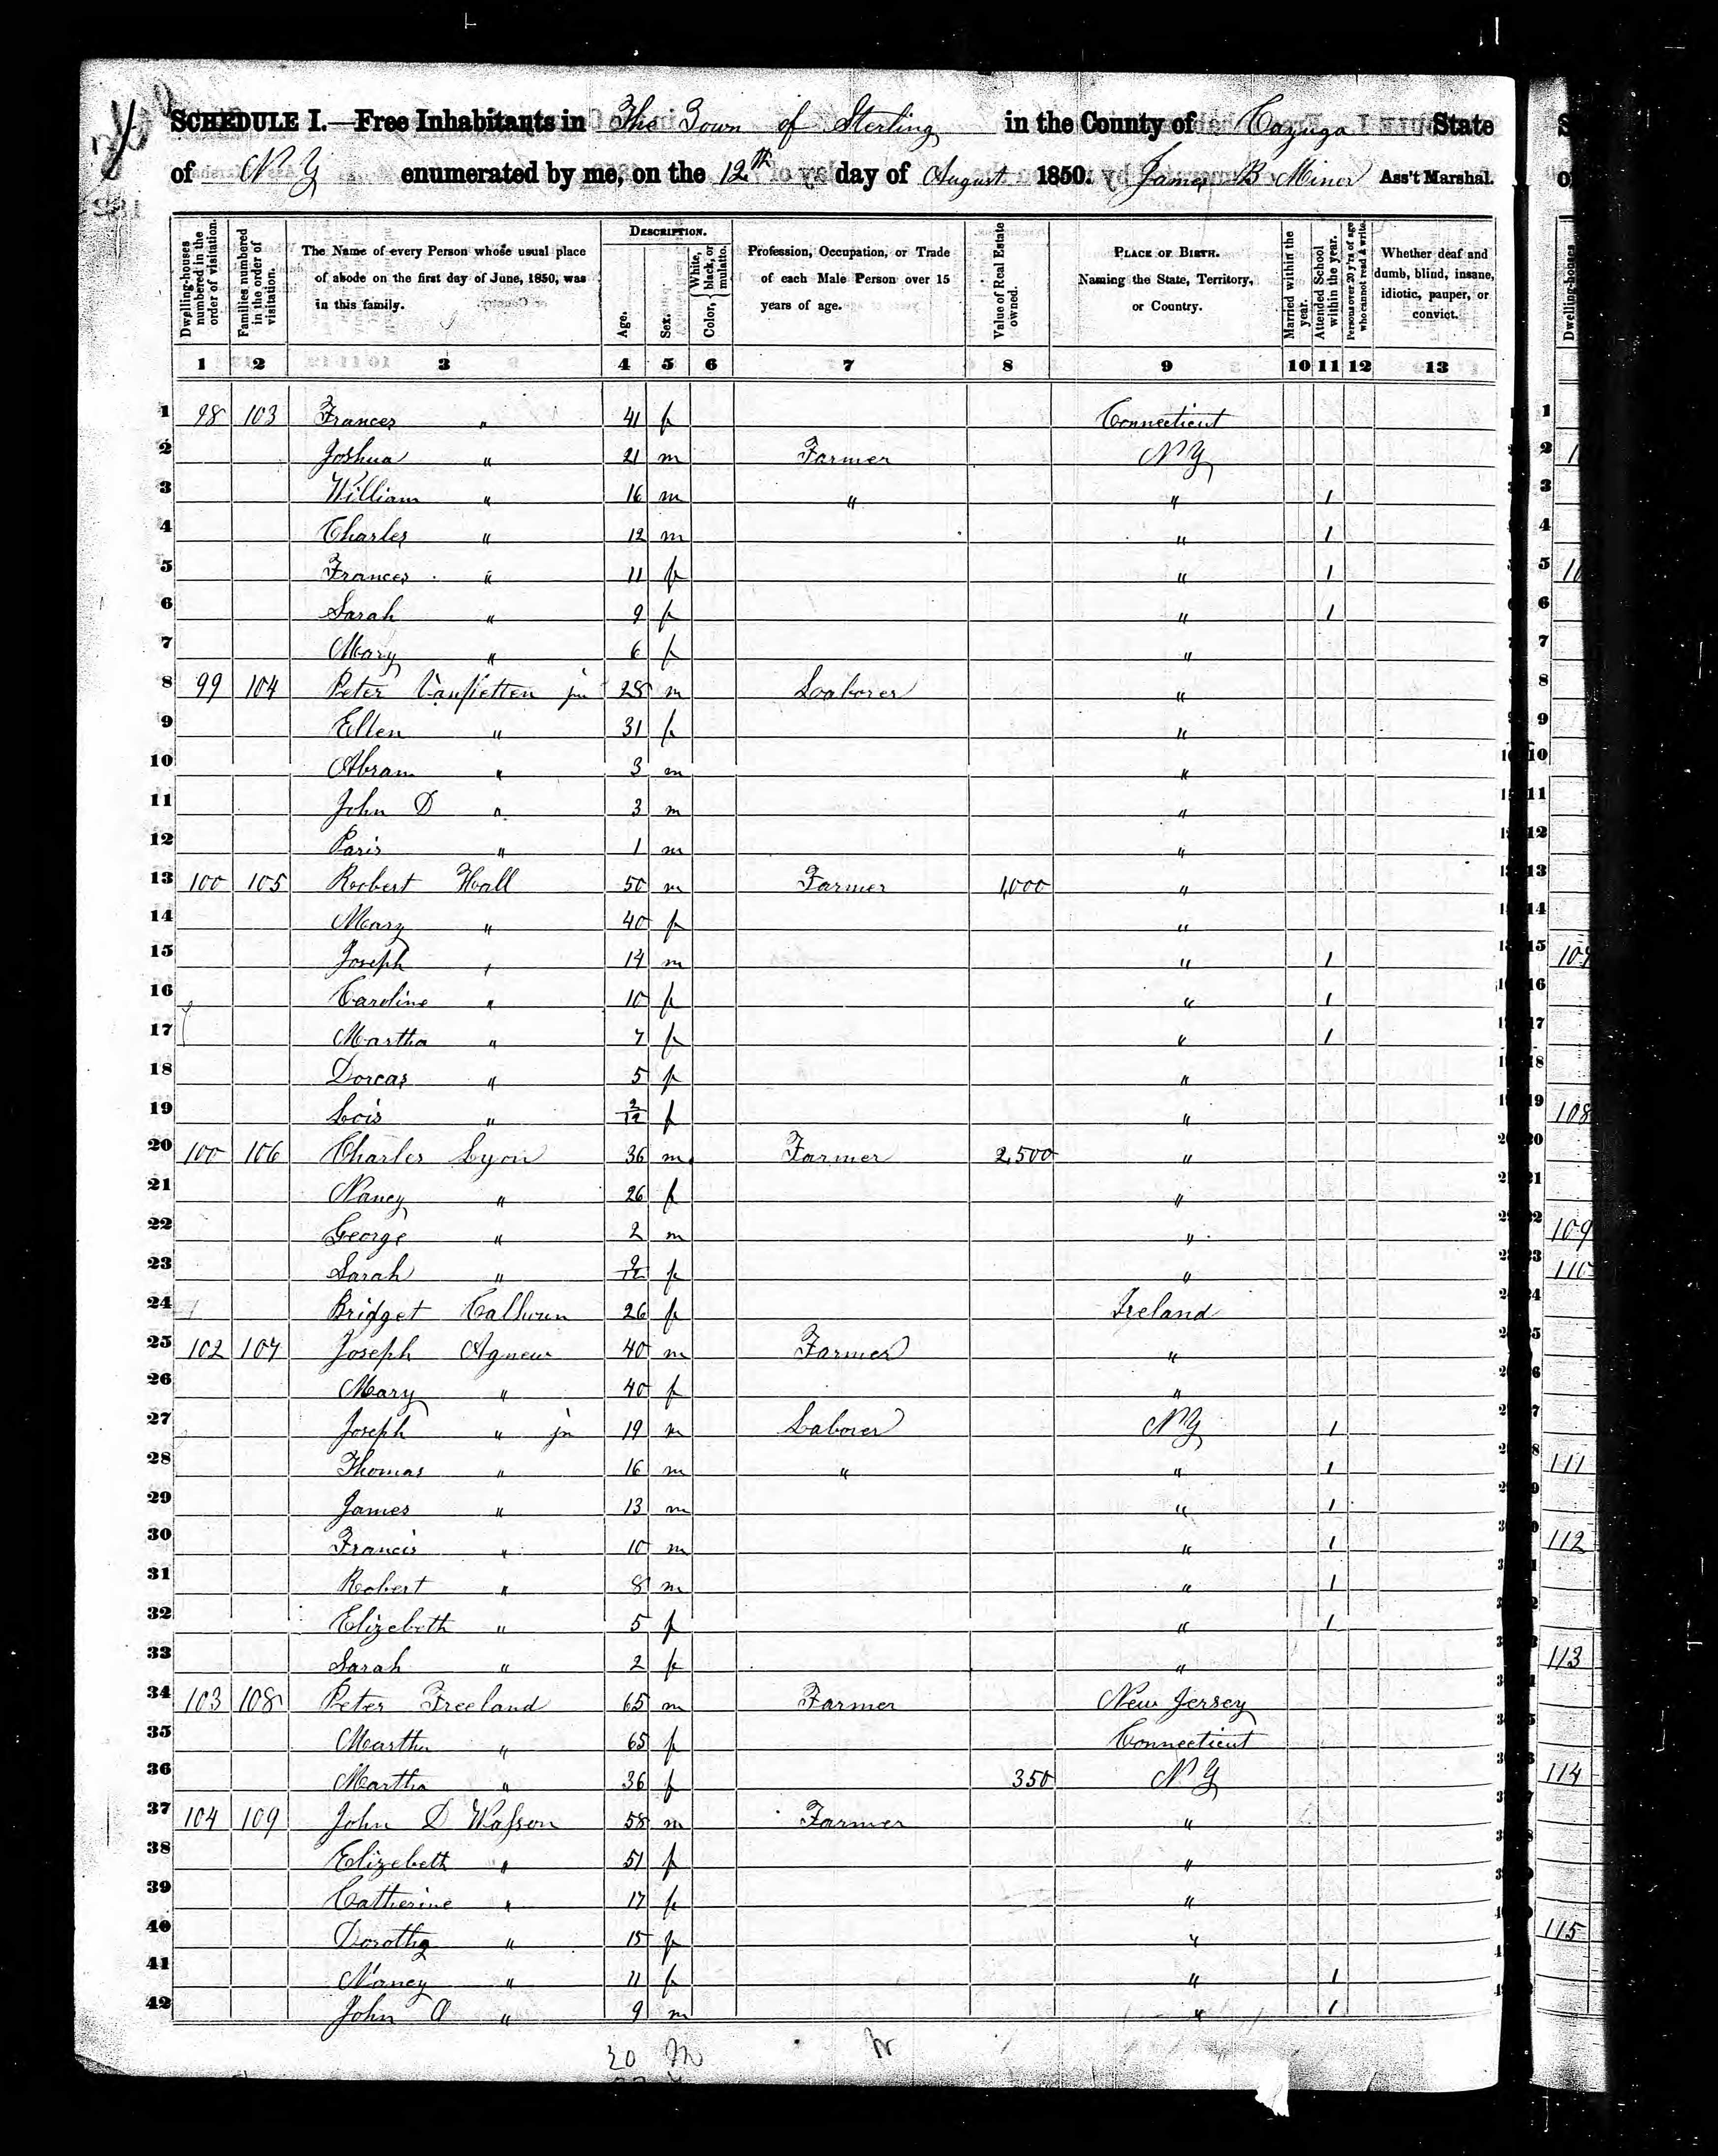 SCHEDULE I.—Free Inhabitants in The Town of Sterling in the County of Cayuga State
of N Y enumerated by me, on the 12th day of August 1850. James B Miner Ass't Marshal.
Dwelling-houses numbered in the order of visitation.
Families numbered in the order of visitation.
The Name of every Person whose usual place of abode on the first day of June, 1850, was in this family.
DESCRIPTION.
Age.
Sex.
Color, { White, black, or mulatto.
Profession, Occupation, or Trade of each Male Person over 15 years of age.
Value of Real Estate owned.
PLACE OF BIRTH. Naming the State, Territory, or Country.
Married within the year.
Attended School within the year.
Persons over 20 y'rs of age who cannot read & write.
Whether deaf and dumb, blind, insane, idiotic, pauper, or convict.
1 2 3 4 5 6 7 8 9 10 11 12 13
1 98 103 Frances " 41 f Connecticut
2 Joshua " 21 m Farmer N Y
3 William " 16 m " " 1
4 Charles " 12 m " 1
5 Frances " 11 f " 1
6 Sarah " 9 f " 1
7 Mary " 6 f "
8 99 104 Peter VanPetten jn 28 m Loaborer "
9 Ellen " 31 f "
10 Abram " 3 m "
11 John D " 3 m "
12 Paris " 1 m "
13 100 105 Robert Hall 50 m Farmer 1,000 "
14 Mary " 40 f "
15 Joseph " 14 m " 1
16 Caroline " 10 f " 1
17 Martha " 7 f " 1
18 Dorcas " 5 f "
19 Lois " 2/12 f "
20 100 106 Charles Lyon 36 m Farmer 2,500 "
21 Nancy " 26 f "
22 George " 2 m "
23 Sarah " f "
24 Bridget Calhoun 26 f Ireland
25 102 107 Joseph Agnew 40 m Farmer "
26 Mary " 40 f "
27 Joseph " jn 19 m Laborer N Y 1
28 Thomas " 16 m " " 1
29 James " 13 m " 1
30 Francis " 10 m " 1
31 Robert " 8 m " 1
32 Elizebeth " 5 f " 1
33 Sarah " 2 f "
34 103 108 Peter Freeland 65 m Farmer New Jersey
35 Martha " 65 f Connecticut
36 Martha " 36 f 350 N Y
37 104 109 John D Wasson 58 m Farmer "
38 Elizebeth " 51 f "
39 Catherine " 17 f "
40 Dorothy " 15 f "
41 Nancy " 11 f " 1
42 John A " 9 m " 1
20 M